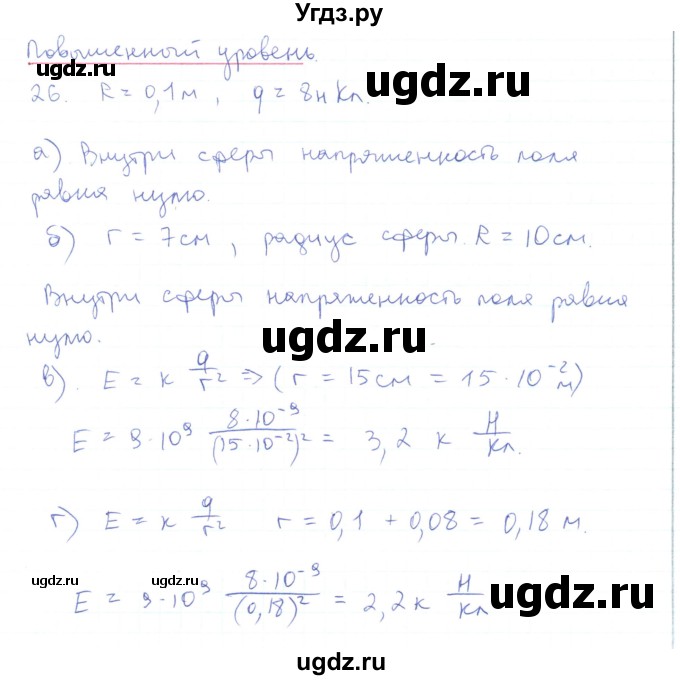 Угдз.ру
Повышенный уровень.
26. R = 0,1 м , q = 8 н Кл.
ugdz.ru
ugdz.ru
а) Внутри сферы напряженность поля
равна нулю.
б) r = 7 см , радиус сферы. R = 10 см.
Внутри сферы напряженность поля равна
нулю.
ugdz.ru
в). E = к q/r² => (r = 15 см = 15 · 10⁻² м)
E = 9 · 10⁹ 8 · 10⁻⁹/(15 · 10⁻²)² = 3,2 к Н/Кл.
г) E = к q/r² r = 0,1 + 0,08 = 0,18 м.
ugdz.ru ugdz.ru ugdz.ru
E = 9 · 10⁹ 8 · 10⁻⁹/(0,18)² = 2,2 к Н/Кл
ugdz.ru